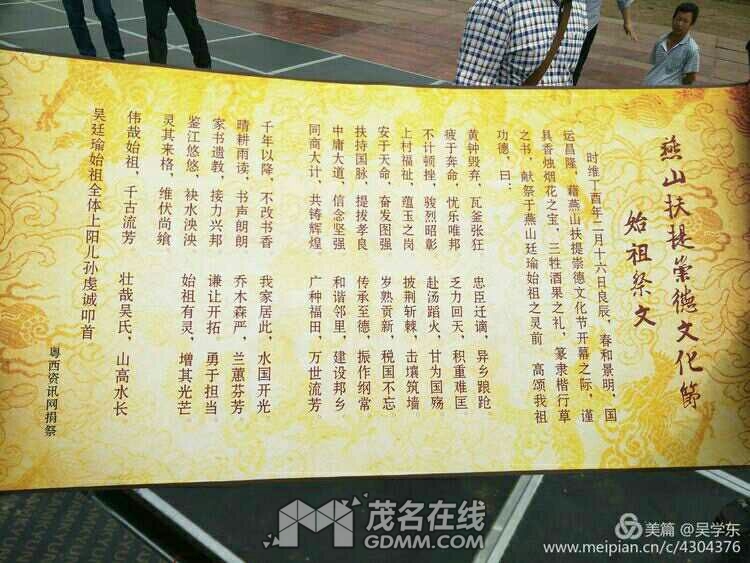 燕山扶提崇德文化节
始祖祭文
时维丁酉年二月十六日良辰，春和景明，国
运昌隆，藉燕山扶提崇德文化节开幕之际，谨
具香烛烟花之宝，三牲酒果之礼，篆隶楷行草
之书，献祭于燕山廷瑜始祖之灵前　高颂我祖
功德，曰：
黄钟毁弃，瓦釜张狂　忠臣迁谪，异乡踉跄
疲于奔命，忧乐唯邦　乏力回天，积重难匡
不计顿挫，骏烈昭彰　赴汤蹈火，甘为国殇
上村福祉，蕴玉之岗　披荆斩棘，击壤筑墙
安于天命，奋发图强　岁熟贡新，税国不忘
扶持国脉，提拔孝良　传承至德，振作纲常
中庸大道，信念坚强　和谐邻里，建设邦乡
同商大计，共铸辉煌　广种福田，万世流芳。
千年以降，不改书香　我家居此，水国开光
晴耕雨读，书声朗朗　乔木森严，兰蕙芬芳。
家书遗教，接力兴邦　谦让开拓，勇于担当
鉴江悠悠，袂水泱泱　始祖有灵，增其光芒
灵其来格，维伏尚飨
伟哉始祖，千古流芳　壮哉吴氏，山高水长
吴廷瑜始祖全体上阳儿孙虔诚叩首
粤西资讯网捐祭
茂名在线
GDMM.COM
美篇 @吴学东
www.meipian.cn/c/4304376